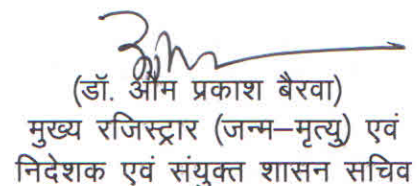 (डॉ. ओम प्रकाश बैरवा)
मुख्य रजिस्ट्रार (जन्म–मृत्यु) एवं
निदेशक एवं संयुक्त शासन सचिव